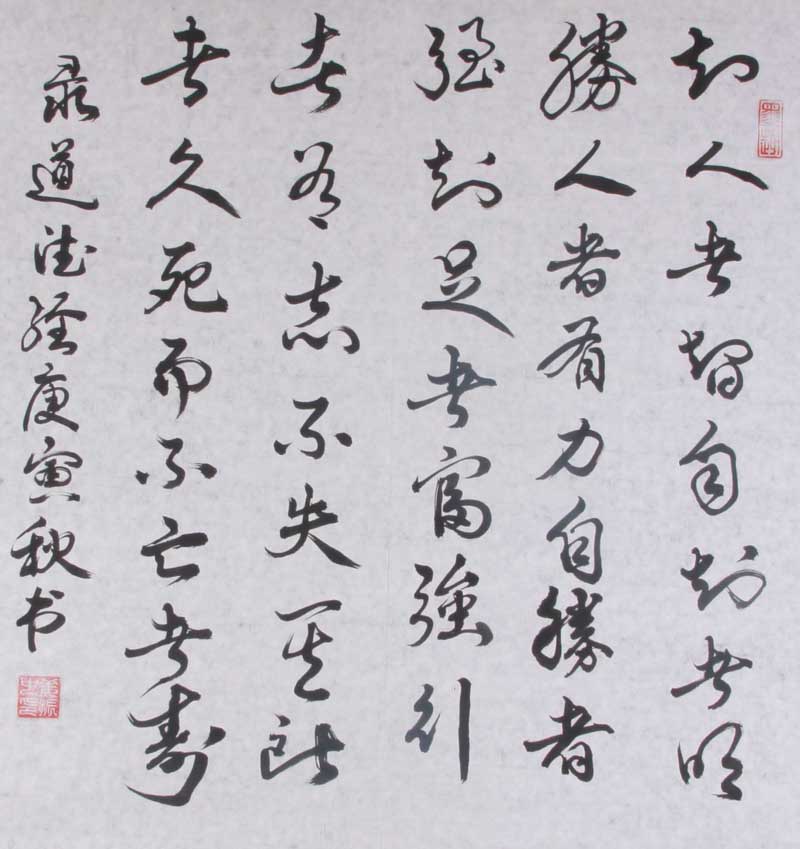 知人者智自知者明
勝人者有力自勝者
強知足者富強行
者有志不失其所
者久死而不亡者壽
录道德經庚寅秋书